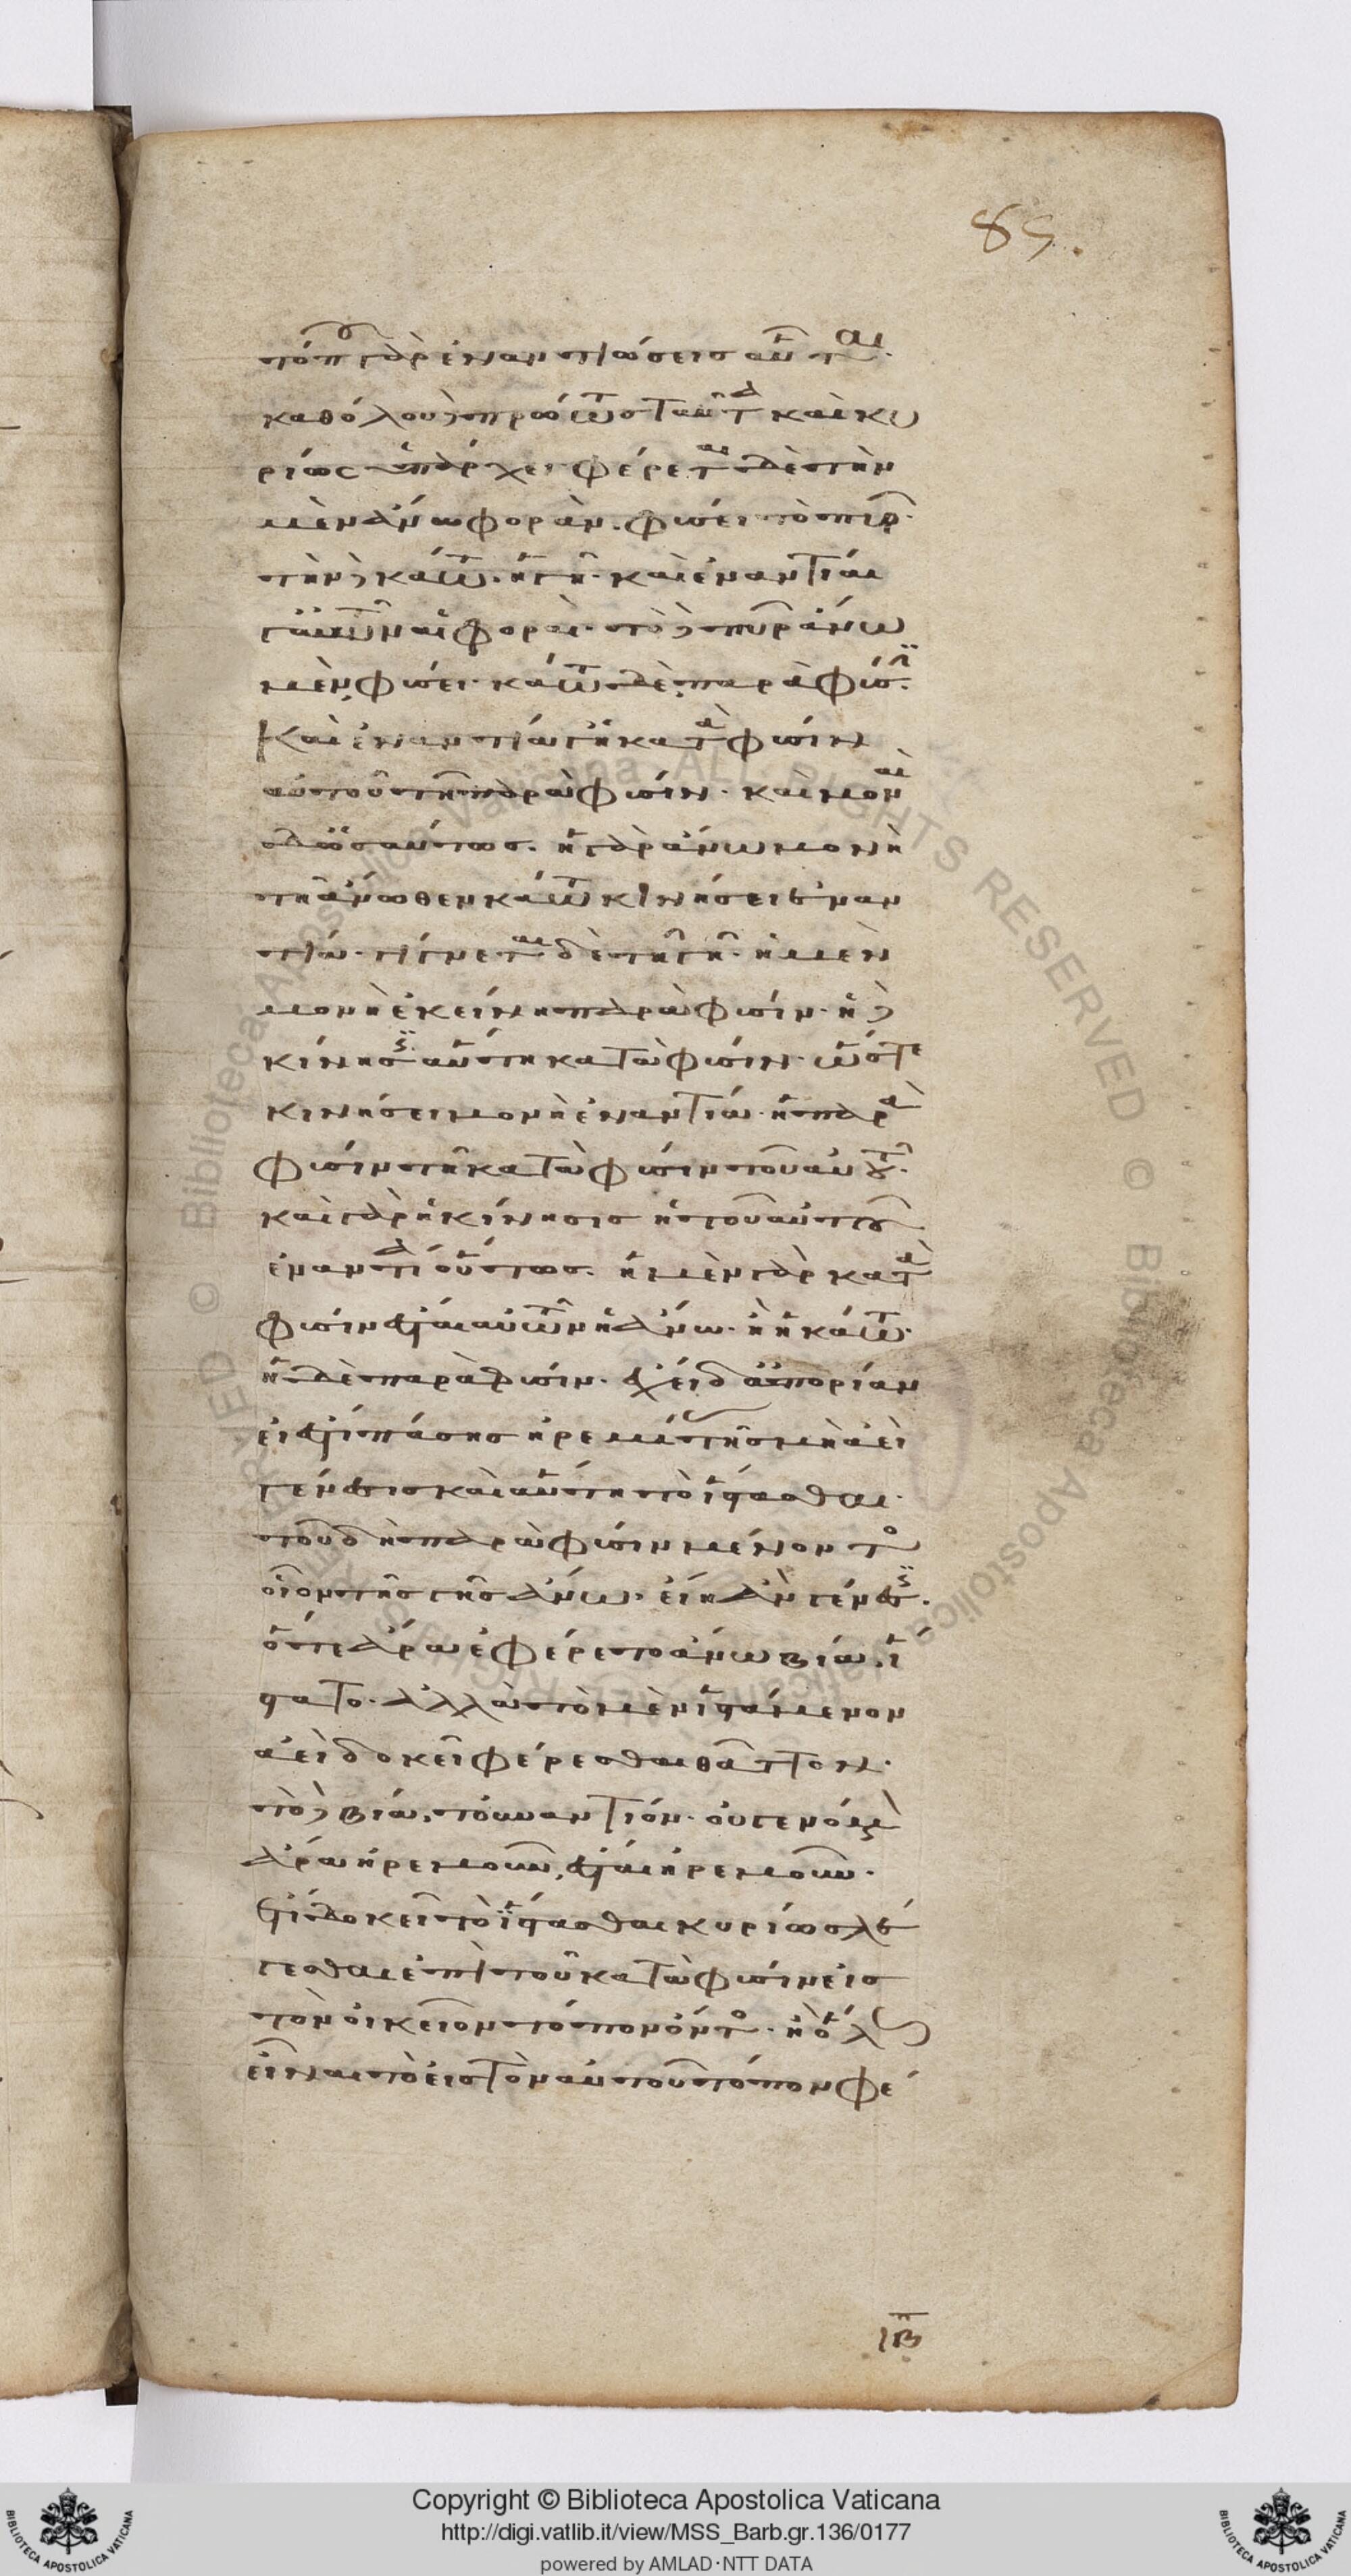 τόπου γὰρ ἐναντιώσεις αὗται.
καθόλου δὲ πρώτως ταῦτα καὶ κυ
ρίως ὑπάρχει φέρεται δὲ τὴν
μὲν ἄνω φοράν. φύσει τὸ πῦρ.
τὴν δὲ κάτω. ἡ γῆ. καὶ ἐναντίαι
γ' αὐτῶν αἱ φοραί. τὸ δὲ πῦρ ἄνω
μὲν φύσει. κάτω δὲ παρὰ φύσιν.
Καὶ ἐναντία γε ἡ κατὰ φύσιν
αὐτοῦ τῇ παρὰ φύσιν. καὶ μοναὶ
δ' ὡσαύτως. ἡ γὰρ ἄνω μονὴ
τῇ ἄνωθεν κάτω κινήσει ἐναν
τία. γίνεται δὲ τῇ γῇ. ἡ μὲν
μονὴ ἐκείνη παρὰ φύσιν. ἡ δὲ
κίνησις αὕτη κατὰ φύσιν. ὥστε
κινήσει μονὴ ἐναντία. ἡ παρὰ
φύσιν τῇ κατὰ φύσιν τοῦ αὐτοῦ.
καὶ γὰρ ἡ κίνησις ἡ τοῦ αὐτοῦ
ἐναντία οὕτως. ἡ μὲν γὰρ κατὰ
φύσιν ἔσται αὐτῶν ἡ ἄνω. ἢ ἡ κάτω.
ἡ δὲ παρὰ φύσιν. ἔχει δ' ἀπορίαν
εἰ ἔστι πάσης ἠρεμίας τῆς μὴ ἀεὶ
γένεσις καὶ αὕτη τὸ ἵστασθαι.
τοῦ δὴ παρὰ φύσιν μένοντος
οἷον τῆς γῆς ἄνω. εἴη ἂν γένεσις.
ὅτε ἄρα ἐφέρετο ἄνω βίᾳ. ἵ
στατο. ἀλλὰ τὸ μὲν ἱστάμενον
ἀεὶ δοκεῖ φέρεσθαι θᾶττον.
τὸ δὲ βίᾳ. τοὐναντίον. οὐ γενόμενον
ἄρα ἠρεμοῦν, ἔσται ἠρεμοῦν.
ἔτι δοκεῖ τὸ ἵστασθαι κυρίως λέ
γεσθαι ἐπὶ τοῦ κατὰ φύσιν εἰς
τὸν οἰκεῖον τόπον ἰόντος. ἢ ὅλως
εἶναι τὸ εἰς τὸν αὑτοῦ τόπον φέ
ιβ
Copyright © Biblioteca Apostolica Vaticana
http://digi.vatlib.it/view/MSS_Barb.gr.136/0177
powered by AMLAD·NTT DATA